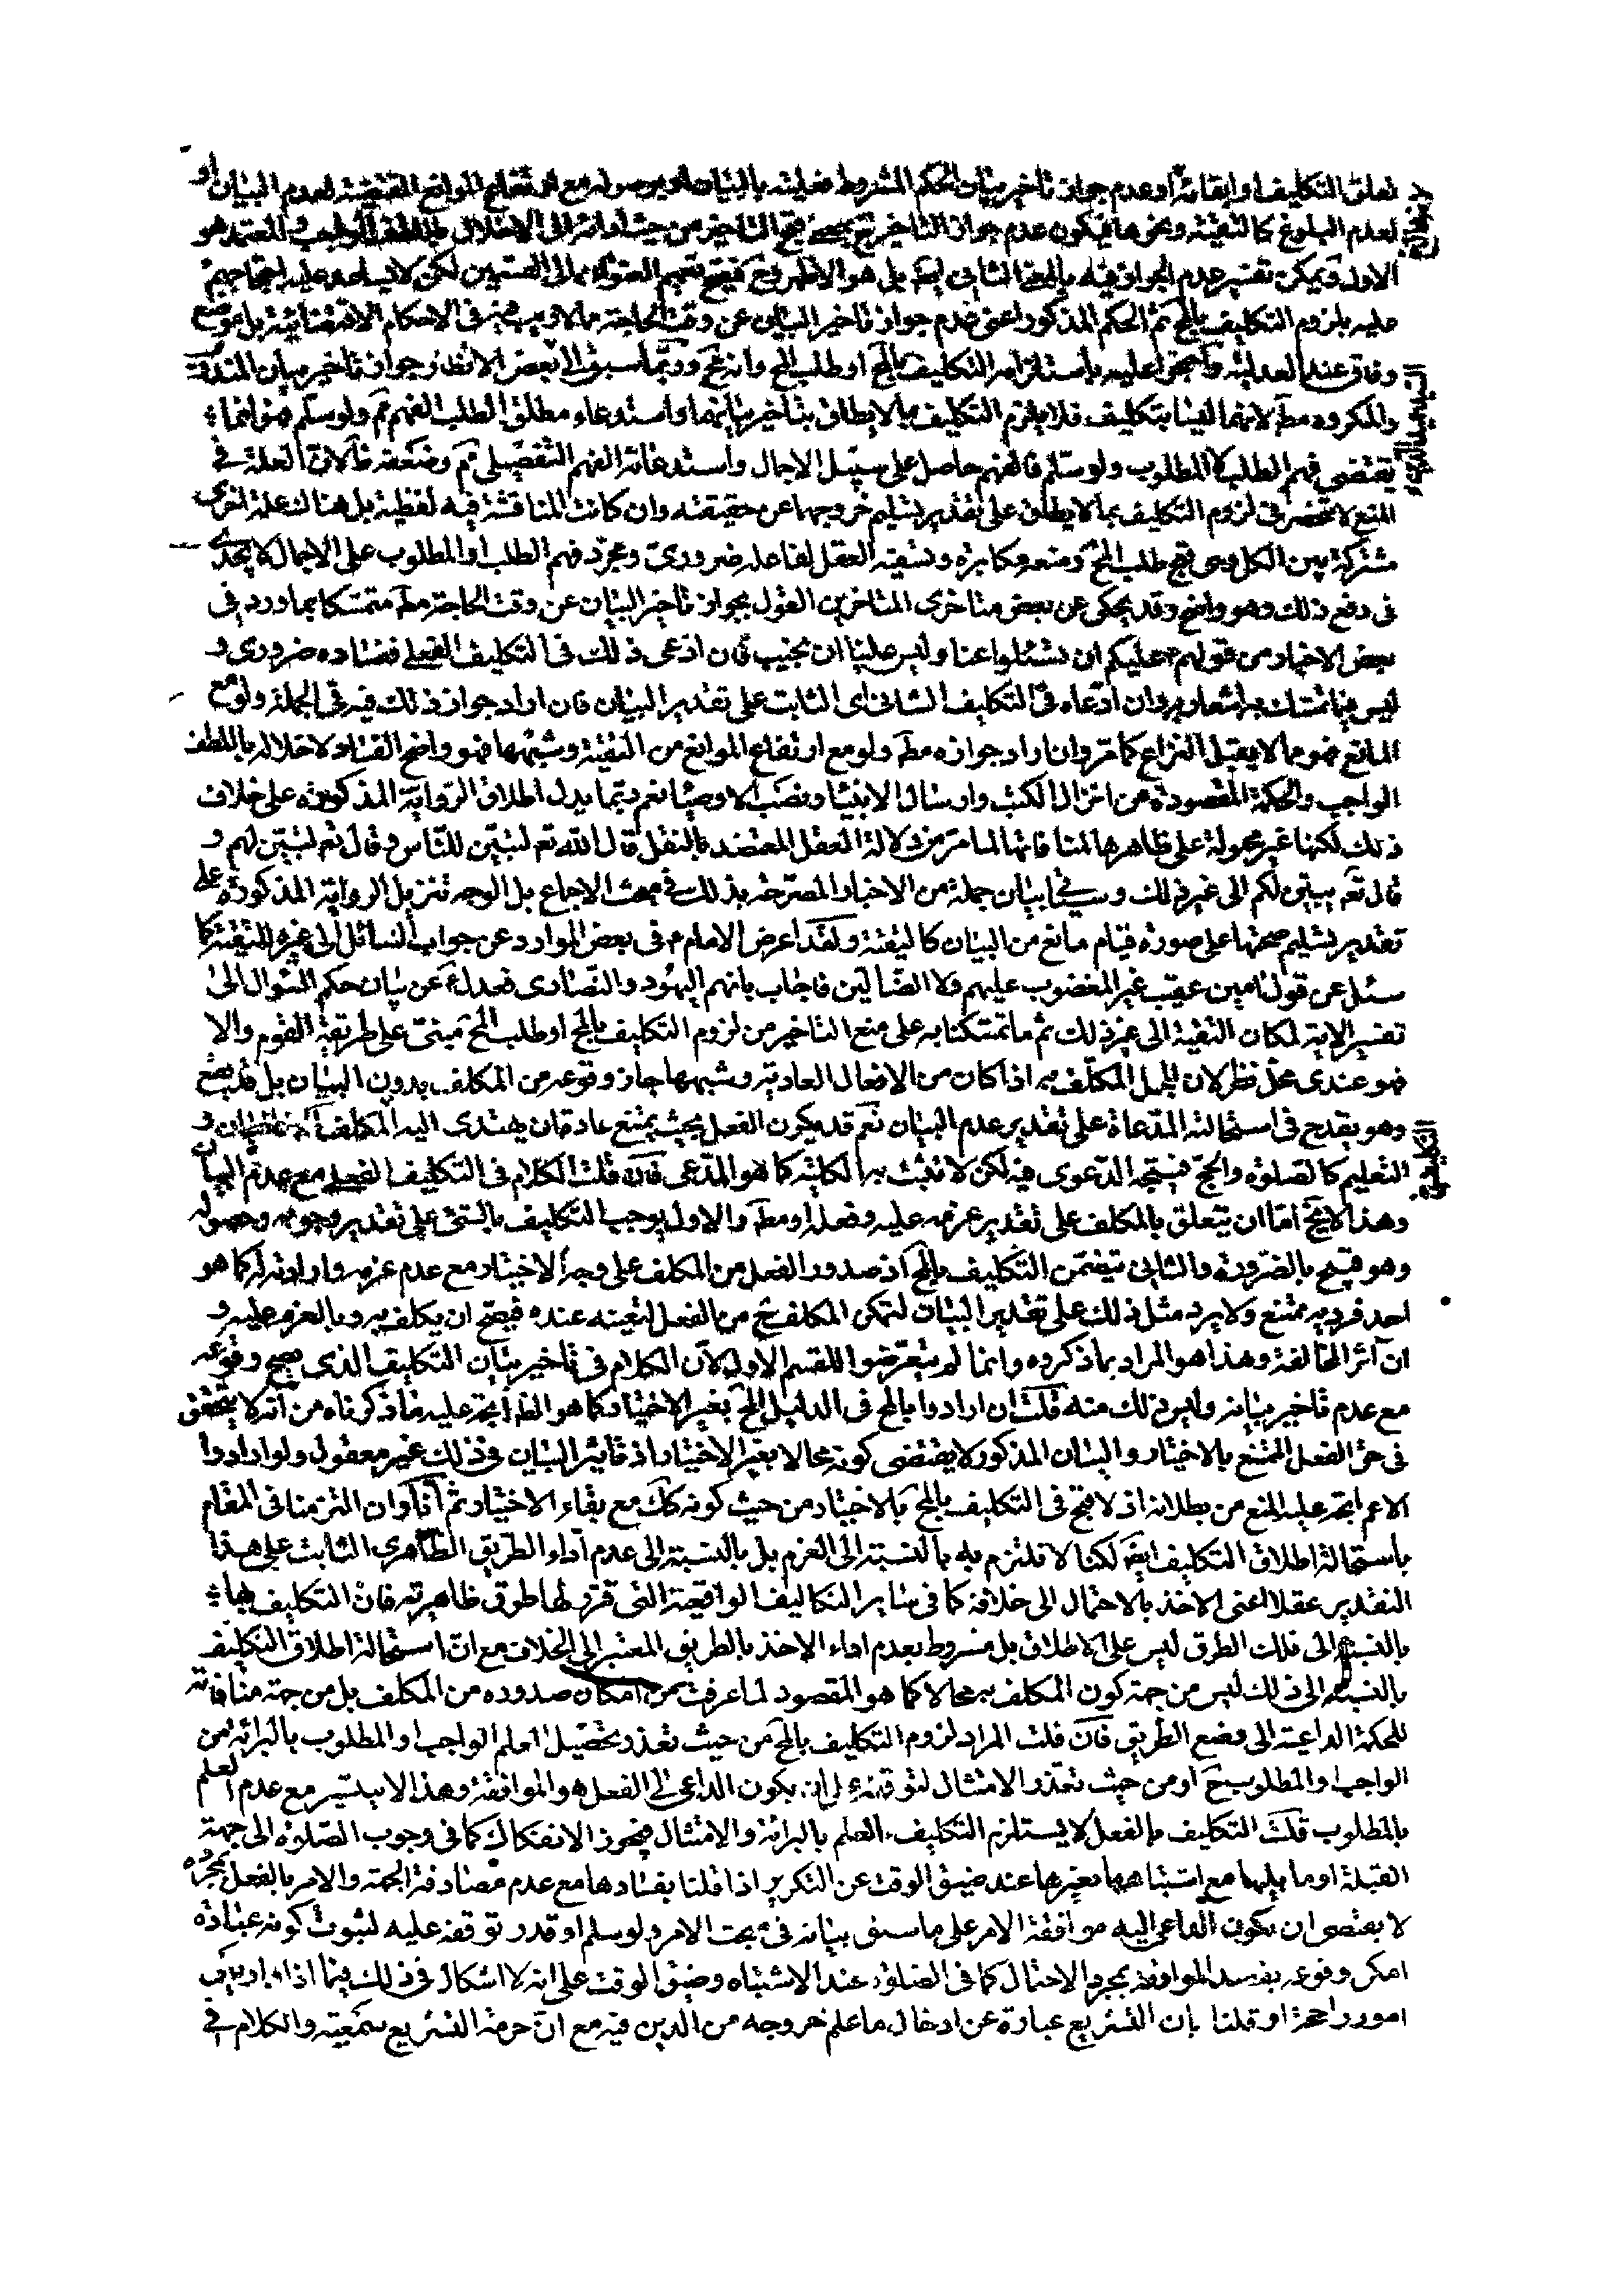 تعلق التكليف او ابقائه او عدم جواز تاخير بيان الحكم المشروط فعليته بالبيان او بوصوله مع ارتفاع الموانع المقتضية لعدم البيان او
لعدم البلوغ كالتقية ونحوها فيكون عدم جواز التاخير ح بمعنى قبح التاخير من حيث ادائه الى الاخلال باللطف الواجب والمعتمد هو
الاول ويمكن تفسير عدم الجواز فيه بالمعنى الثانى ايضا بل هو الاظهر وح فيتجه تعميم العنوان الى القسمين لكن لا يساعد عليه احتجاجهم
عليه بلزوم التكليف بالمحال ثم الحكم المذكور اعنى عدم جواز تاخير البيان عن وقت الحاجة مما لا ريب فيه فى الاحكام الاقتضائية بل موضع
وفاق عند العدلية واحتجوا عليه باستلزامه التكليف بالمح او طلب المح وانه مح وربما سبق الى بعض الانظار جواز تاخير بيان المندوب
والمكروه مط لانهما ليسا بتكليف فلا يلزم التكليف بما لا يطاق بتاخير بيانهما واستدعاء مطلق الطلب الفهم مم ولو سلم فهو انما
يقتضى فهم الطلب لا المطلوب ولو سلم فالفهم حاصل على سبيل الاجمال واستدعائه الفهم التفصيلى مم وضعفه ظ لان العلة فى
المنع لا تنحصر فى لزوم التكليف بما لا يطاق على تقدير تسليم خروجهما عن حقيقته وان كانت المناقشة فيه لفظية بل هنالك علة اخرى
مشتركة بين الكل وهى قبح طلب المح ومنعه مكابرة وتسفيه العقل لفاعله ضرورى ومجرد فهم الطلب او المطلوب على الاجمال لا يجدى
فى دفع ذلك وهو واضح وقد يحكى عن بعض متاخرى المتاخرين القول بجواز تاخير البيان عن وقت الحاجة مط متمسكا بما ورد فى
بعض الاخبار من قولهم ع عليكم ان تسئلوا عنا وليس علينا ان نجيب فان ادعى ذلك فى التكليف الفعلى ففساده ضرورى و
ليس فيما تمسك به اشعار به وان ادعاه فى التكليف الشانى اى الثابت على تقدير البيان فان اراد جواز ذلك فيه فى الجملة ولو مع
المانع فهو مما لا يقبل النزاع كما مر وان اراد جوازه مط ولو مع ارتفاع الموانع من التقية وشبهها فهو واضح الفساد لاخلاله باللطف
الواجب والحكمة المقصودة من انزال الكتب وارسال الانبياء ونصب الاوصياء نعم ربما يدل اطلاق الرواية المذكورة على خلاف
ذلك لكنها غير محمولة على ظاهرها لمنافاتها لما مر من دلالة العقل المعتضد بالنقل قال الله تع لتبين للناس وقال تع ليبين لهم و
قال تع يبين لكم الى غير ذلك وسياتى بيان جملة من الاخبار المصرحة بذلك فى مبحث الاجماع بل الوجه تنزيل الرواية المذكورة على
تقدير تسليم صحتها على صورة قيام مانع من البيان كالتقية ولقد اعرض الامام ع فى بعض الموارد عن جواب السائل الى غيره للتقية كما
سئل عن قول امين عقيب غير المغضوب عليهم ولا الضالين فاجاب بانهم اليهود والنصارى فعدل ع عن بيان حكم السؤال الى
تفسير الاية لمكان التقية الى غير ذلك ثم ما تمسكنا به على منع التاخير من لزوم التكليف بالمح او طلب المح مبنى على طريقة القوم والا
فهو عندى محل نظر لان المكلف به اذا كان من الافعال العادية وشبهها جاز وقوعه من المكلف بدون البيان بل قد يقع
وهو يقدح فى استحالته المدعاة على تقدير عدم البيان نعم قد يكون الفعل بحيث يمتنع عادة ان يهتدى اليه المكلف
التعليم كالصلوة والحج فيتجه الدعوى فيه لكن لا تثبت بها الكلية كما هو المدعى فان قلت الكلام فى التكليف الفعلى مع عدم البيان
وهذا لا يخ اما ان يتعلق بالمكلف على تقدير عزمه عليه وفعله او مط والاول يوجب التكليف بالشئ على تقدير وجوده وحصوله
وهو قبيح بالضرورة والثانى يتضمن التكليف بالمح اذ صدور الفعل من المكلف على وجه الاختيار مع عدم عزمه وارادته له كما هو
احد فرديه ممتنع ولا يرد مثل ذلك على تقدير البيان لتمكن المكلف ح من الفعل لتعينه عنده فيصح ان يكلف به وبالعزم عليه و
ان آثر المخالفة وهذا هو المراد بما ذكروه وانما لم يتعرضوا للقسم الاول لان الكلام فى تاخير بيان التكليف الذى يصح وقوعه
مع عدم تاخير بيانه وليس ذلك منه قلت ان ارادوا بالمح فى الدليل المح بغير الاختيار كما هو الظ اتجه عليه ما ذكرناه من انه لا يتحقق
فى حق الفعل الممتنع بالاختيار والبيان المذكور لا يقتضى كونه محالا بغير الاختيار اذ تاثير البيان فى ذلك غير معقول ولو ارادوا
الاعم اتجه عليه المنع من بطلانه اذ لا قبح فى التكليف بالمح بالاختيار من حيث كونه كك مع بقاء الاختيار ثم انا وان التزمنا فى المقام
باستحالة اطلاق التكليف ايضا لكنا لا نلتزم به بالنسبة الى العزم بل بالنسبة الى عدم اداء الطريق الظاهرى الثابت على هذا
التقدير عقلا اعنى الاخذ بالاحتمال الى خلافه كما فى ساير التكاليف الواقعية التى قرر لها طرق ظاهرية فان التكليف بها
بالنسبة الى تلك الطرق ليس على الاطلاق بل مشروط بعدم اداء الاخذ بالطريق المعتبر الى الخلاف مع ان استحالة اطلاق التكليف
بالنسبة الى ذلك ليس من جهة كون المكلف به محالا كما هو المقصود لما عرفت من امكان صدوره من المكلف بل من جهة منافاته
للحكمة الداعية الى وضع الطريق فان قلت المراد لزوم التكليف بالمح من حيث تعذر تحصيل العلم الواجب او المطلوب بالبرائة من
الواجب او المطلوب ح او من حيث تعذر الامتثال لتوقفه على ان يكون الداعى الى الفعل هو الموافقة وهذا لا يتيسر مع عدم العلم
بالمطلوب قلت التكليف بالفعل لا يستلزم التكليف بالعلم بالبرائة والامتثال فيجوز الانفكاك كما فى وجوب الصلوة الى جهة
القبلة او ما يليها مع اشتباهها بغيرها عند ضيق الوقت عن التكرير اذا قلنا بفسادها مع عدم مصادفة الجهة والامر بالفعل بمجرده
لا يقتضى ان يكون الداعى اليه موافقة الامر على ما سبق بيانه فى مبحث الامر ولو سلم او قدر توقفه عليه لثبوت كونه عبادة
امكن وقوعه بقصد الموافقة بمجرد الاحتمال كما فى الصلوة عند الاشتباه وضيق الوقت على انه لا اشكال فى ذلك فيما اذا دار بين
امور راجحة او قلنا بان التشريع عبارة عن ادخال ما علم خروجه من الدين فيه مع ان حرمة التشريع سمعية والكلام فى